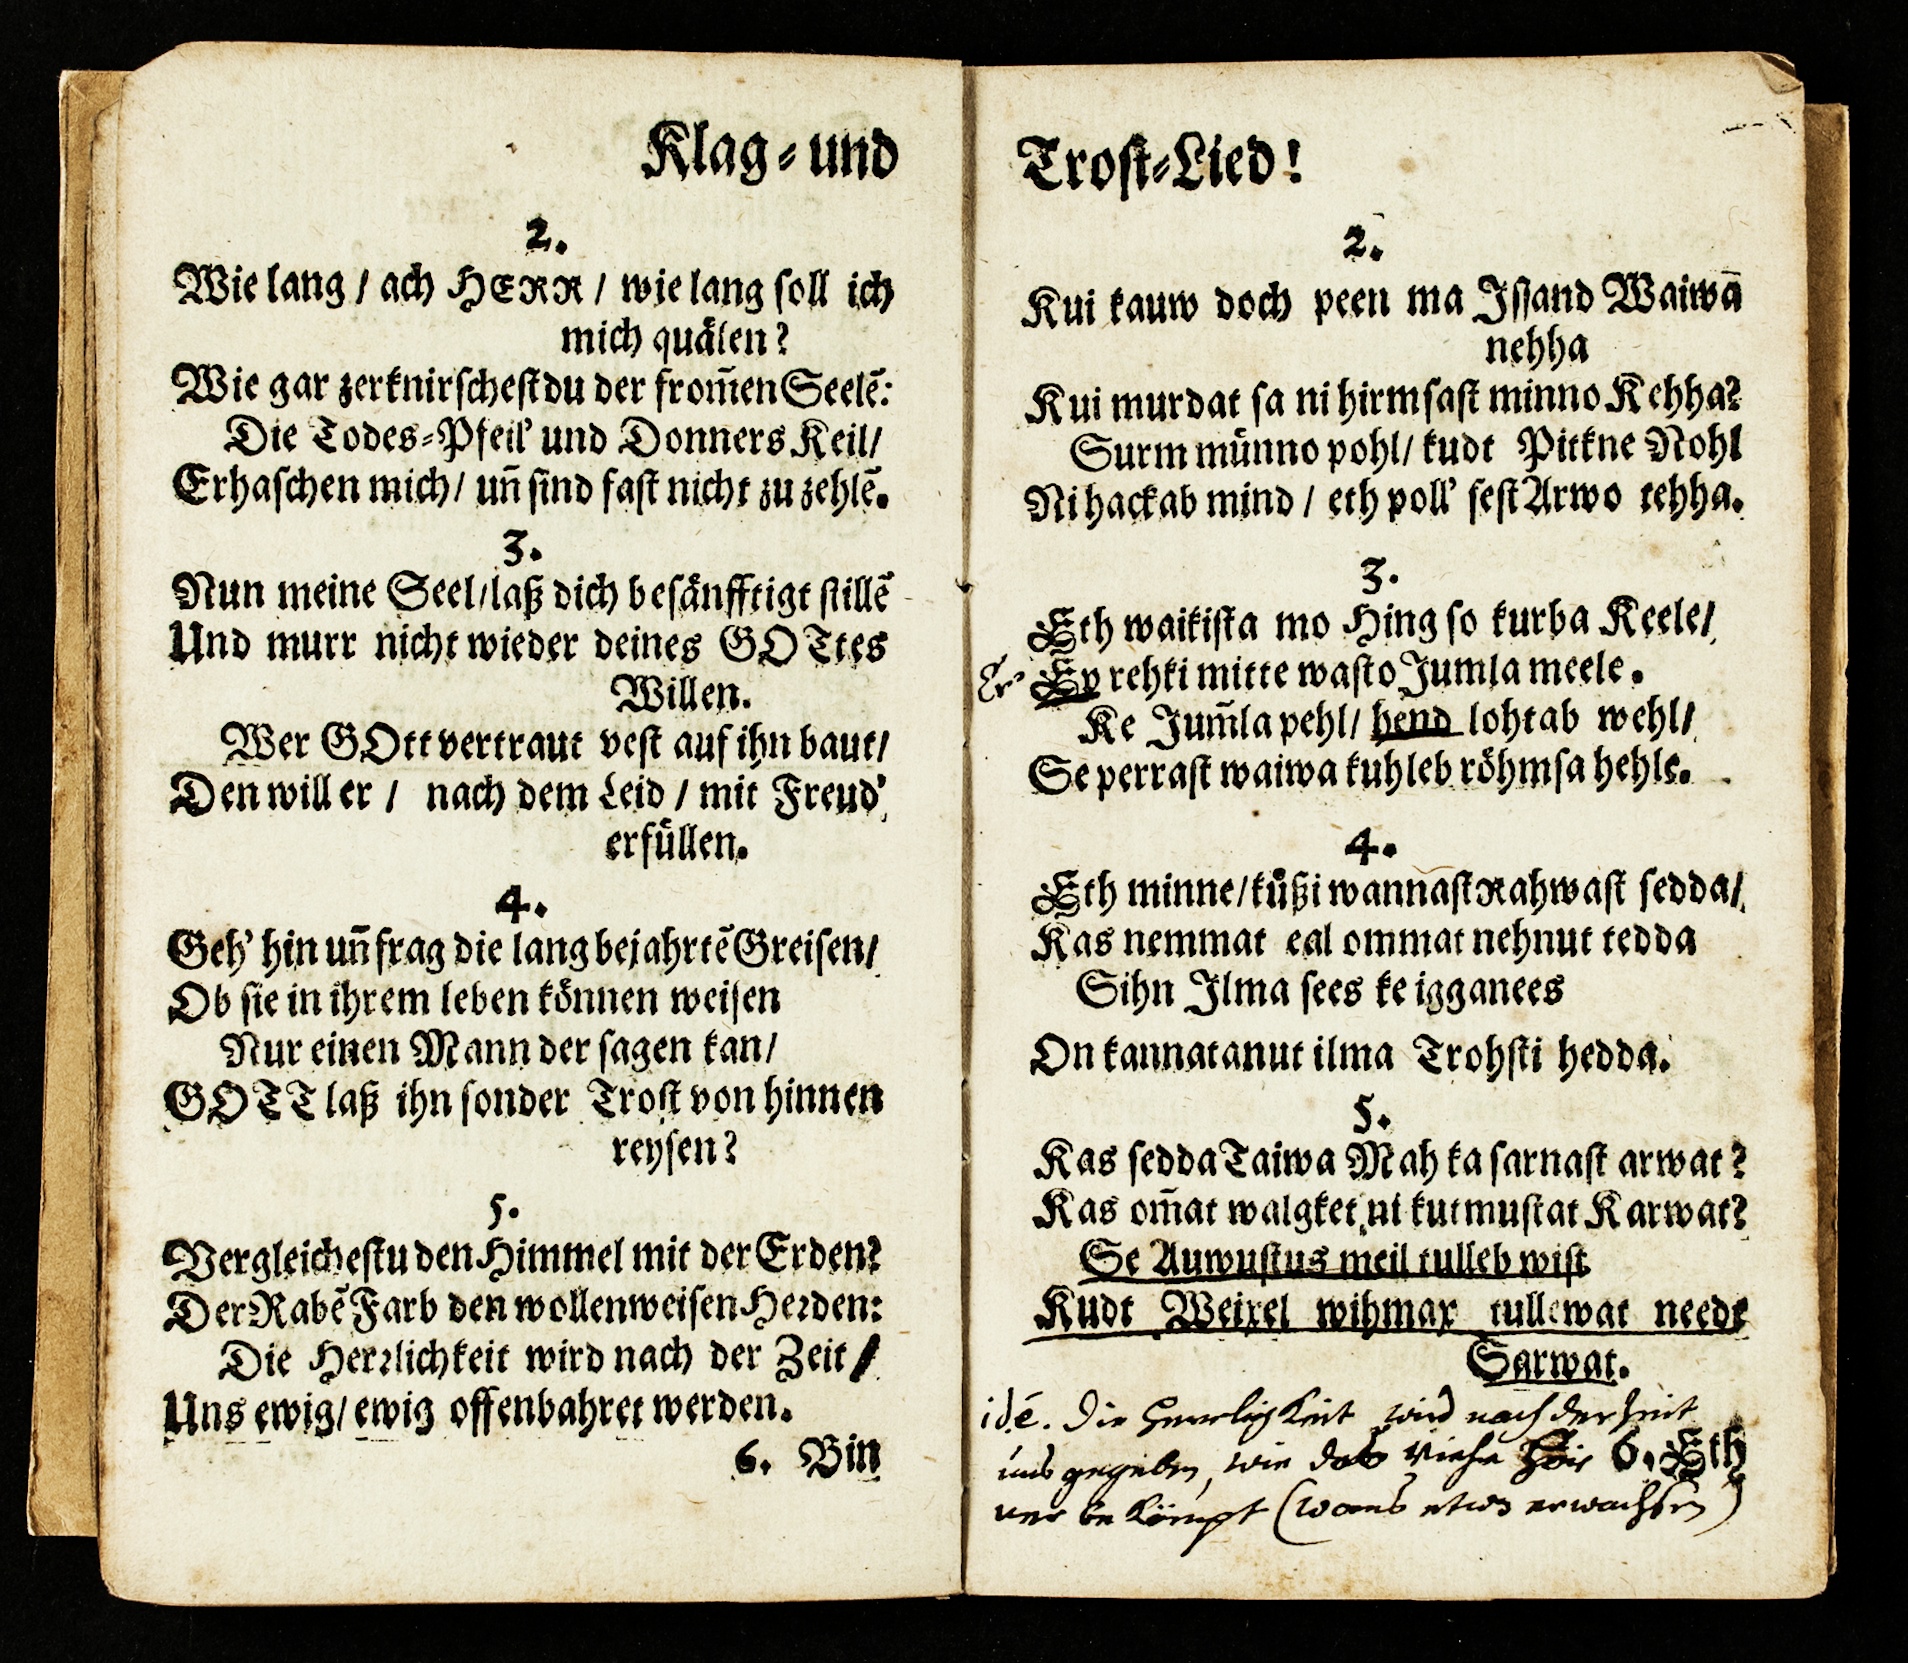 Klag- und
2.
Wie lang / ach HERR / wie lang soll ich
mich quälen?
Wie gar zerknirschest du der from̃en Seelẽ:
Die Todes-Pfeil' und Donners Keil/
Erhaschen mich/ uñ sind fast nicht zu zehlẽ.
3.
Nun meine Seel/laß dich besänfftigt stillẽ
Und murr nicht wieder deines GOTtes
Willen.
Wer GOtt vertraut vest auf ihn baut/
Den will er / nach dem Leid / mit Freud'
erfüllen.
4.
Geh' hin uñ frag die lang bejahrtẽ Greisen/
Ob sie in ihrem leben können weisen
Nur einen Mann der sagen kan/
GOTT laß ihn sonder Trost von hinnen
reysen?
5.
Vergleichestu den Himmel mit der Erden?
Der Rabẽ Farb den wollenweisen Herden:
Die Herrlichkeit wird nach der Zeit/
Uns ewig/ ewig offenbahret werden.
6. Bin
Trost-Lied!
2.
Kui kauw doch peen ma Issand Waiwã
nehha
Kui murdat sa ni hirmsast minno Kehha?
Surm münno pohl/ kudt Pitkne Nohl
Ni hackab mind / eth poll' sest Arwo tehha.
3.
Eth waikista mo Hing so kurba Keele/
Ey rehki mitte wasto Jumla meele.
Ke Jum̃la pehl/ hend lohtab wehl/
Se perrast waiwa kuhleb röhmsa hehle.
4.
Eth minne/küßi wannast Rahwast sedda/
Kas nemmat eal ommat nehnut tedda
Sihn Ilma sees ke igganees
On kannatanut ilma Trohsti hedda.
5.
Kas sedda Taiwa Mah ka sarnast arwat?
Kas om̃at walgket ni kut mustat Karwat?
Se Auwustus meil tulleb wist
Kudt Weixel wihmax tullewat needt
Sarwat.
idẽ. Die Herrligkeit wird nach der Zeit
uns gegeben, wie das Viehe 6. Eth
(wans etwas erwachsen)